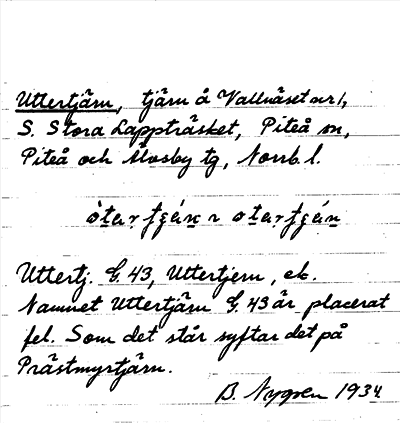 Uttertjärn, tjärn å Vallnäset nr 1,
S. Stora Lappträsket, Piteå sn,
Piteå och Älvsby tg, Norrb. l.
òtar̥ t̯ʃæ̀n ɿ otar̥ t̯ʃæ̀n
Uttertj. G. 43, Uttertjern, ek.
Namnet Uttertjärn G. 43 är placerat
fel. Som det står syftar det på
Prästmyrtjärn.
B. Nygren 1934